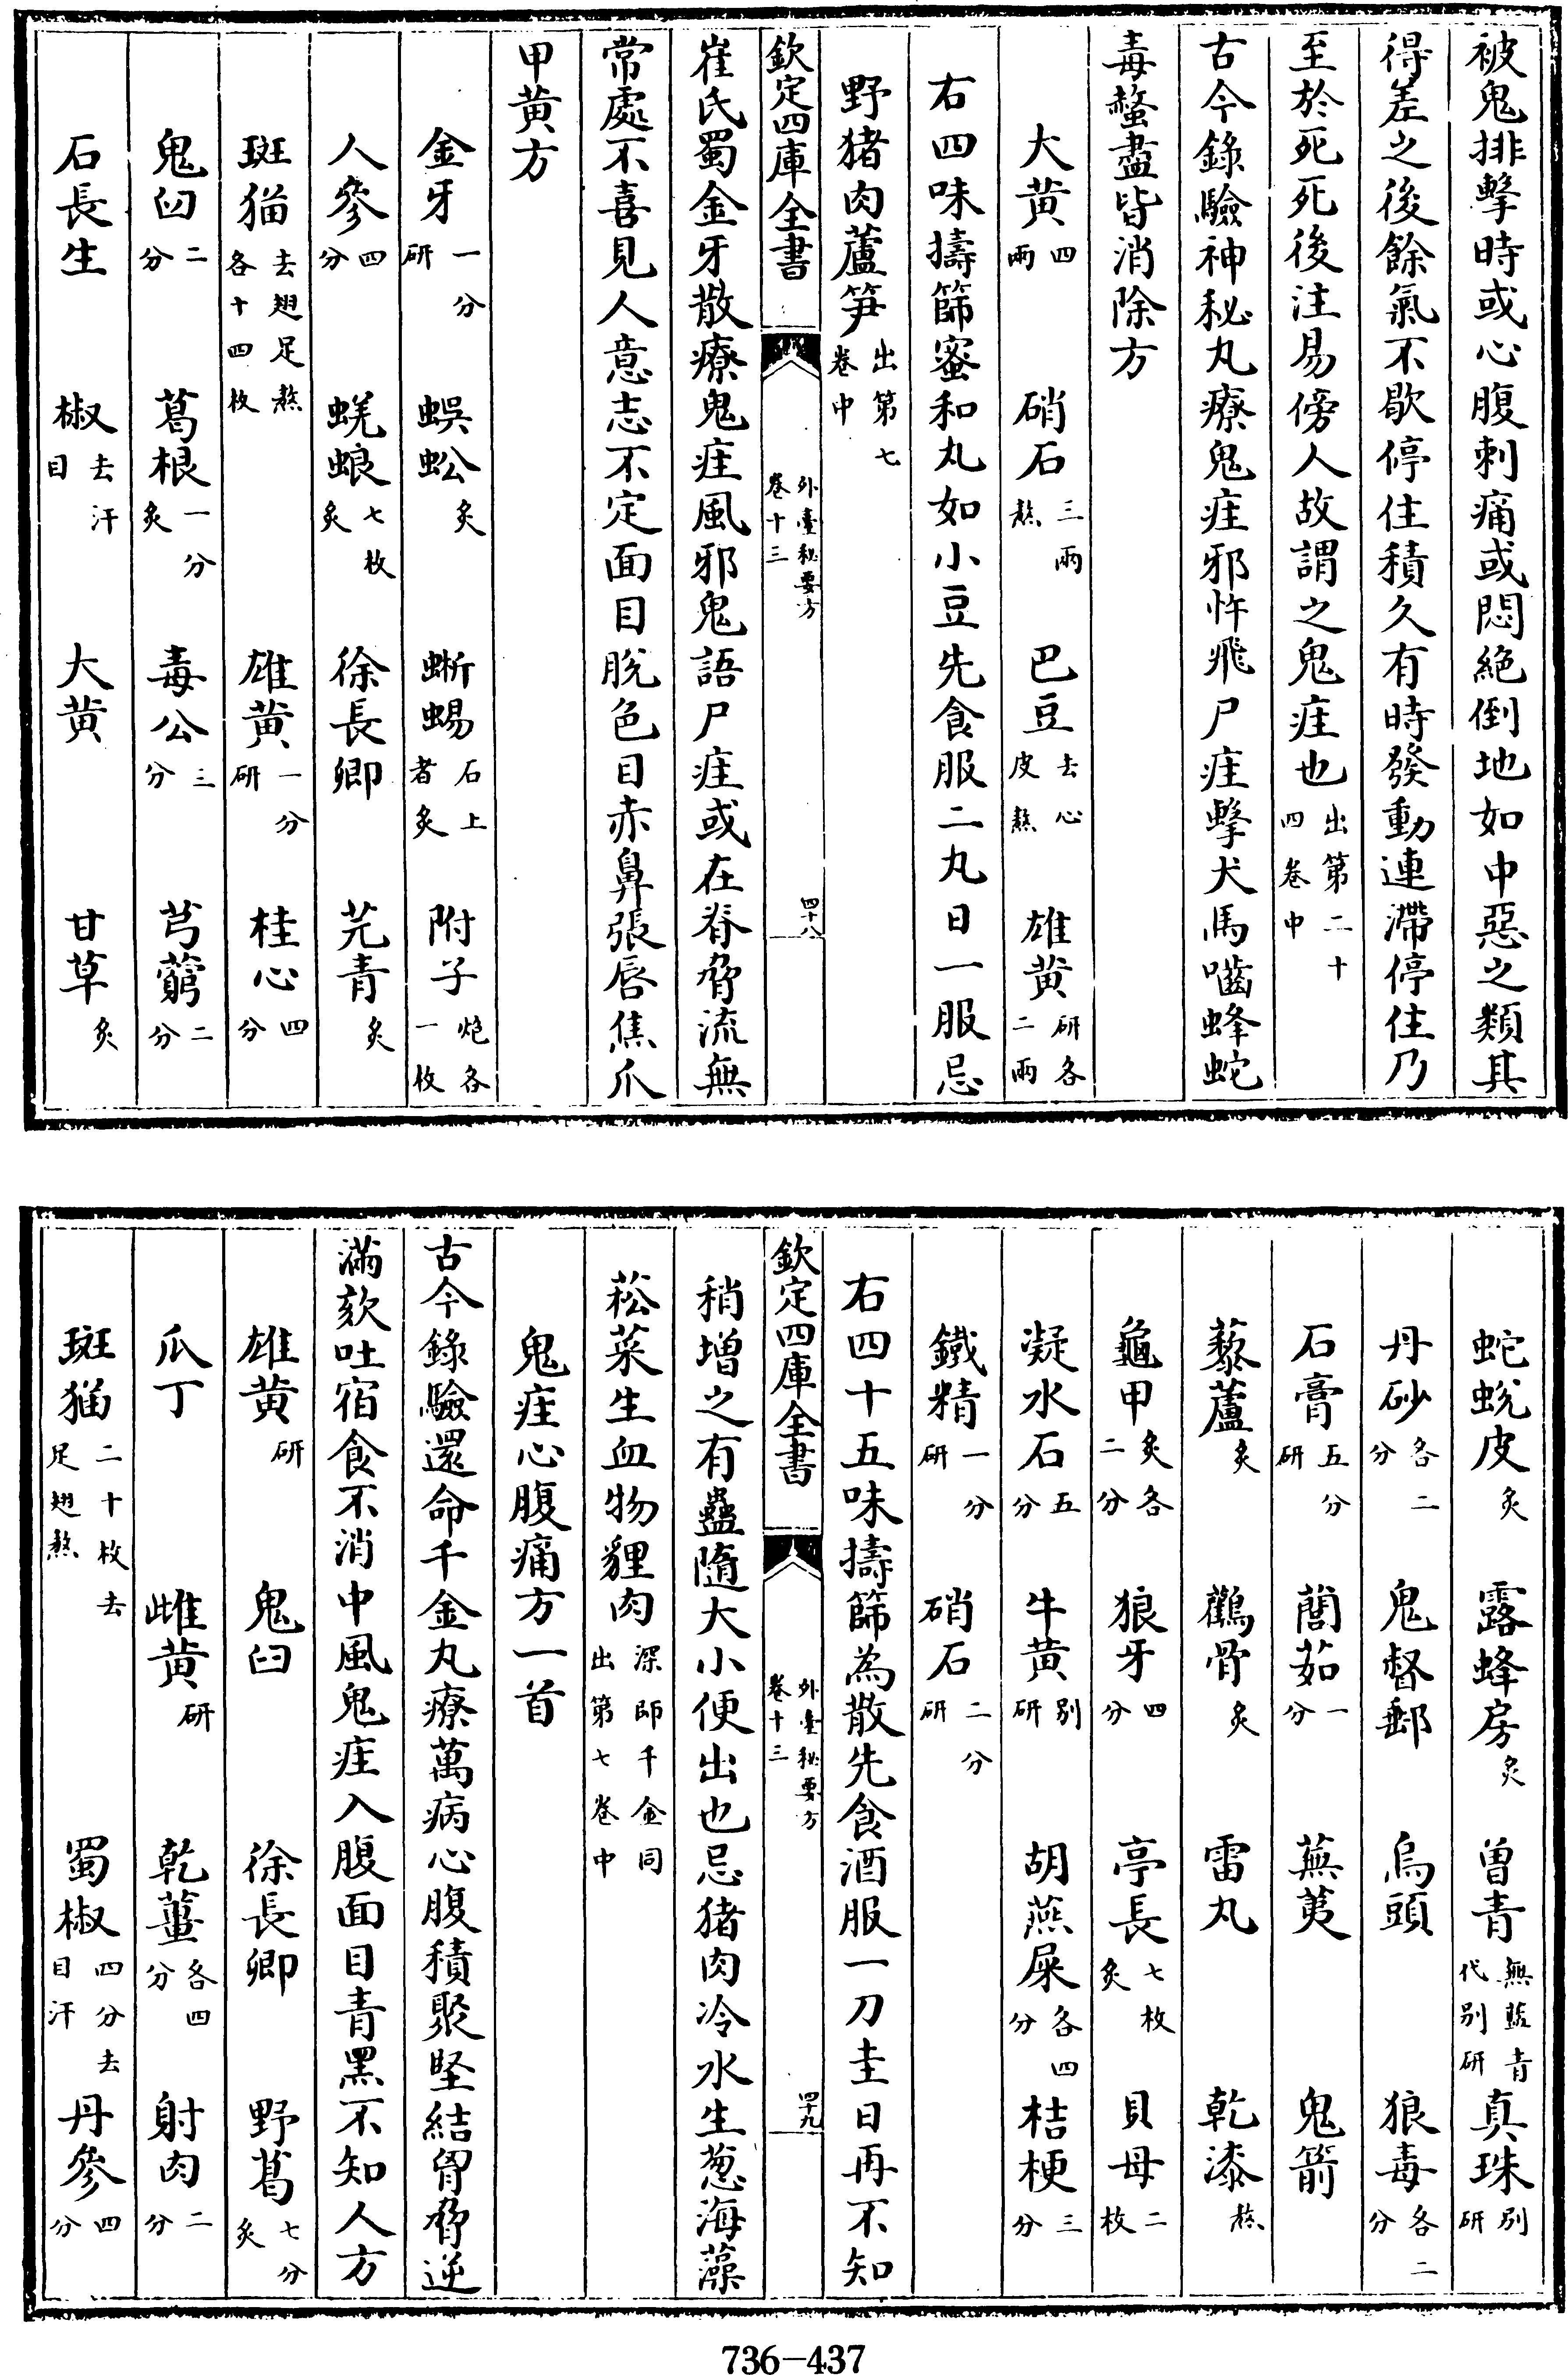 被鬼排擊時或心腹刺痛或悶絕倒地如中惡之類其
得差之後餘氣不歇停住積久有時發動連滯停住乃
至於死死後注易傍人故謂之鬼疰也出第二十四卷中
古今錄驗神秘丸療鬼疰邪忤飛尸疰擊犬馬嚙蜂蛇
毒螫盡皆消除方
大黄四兩 硝石三兩熬 巴豆去心皮熬 雄黄研各二兩
右四味擣篩蜜和丸如小豆先食服二丸日一服忌
野猪肉蘆笋出第七卷中
欽定四庫全書 外臺秘要方卷十三 四十八
崔氏蜀金牙散療鬼疰風邪鬼語尸疰或在脊脅流無
常處不喜見人意志不定面目脫色目赤鼻張唇焦爪
甲黄方
金牙一分研 蜈蚣炙 蜥蜴石上者炙 附子炮各一枚
人參四分 蜣蜋七枚炙 徐長卿 芫青炙
斑猫去翅足熬各十四枚 雄黄一分研 桂心四分
鬼臼二分 葛根一分炙 毒公三分 芎藭二分
石長生 椒去汗目 大黄 甘草炙
蛇蛻皮炙 露蜂房炙 曽青無藍青代别研 真珠别研
丹砂各二分 鬼督郵 烏頭 狼毒各二分
石膏五分研 䕡茹一分 蕪荑 鬼箭
藜蘆炙 鸛骨炙 雷丸 乾漆熬
龜甲炙各二分 狼牙四分 亭長七枚炙 貝母二枚
凝水石五分 牛黄别研 胡燕屎各四分 桔梗三分
鐵精一分研 硝石二分研
右四十五味擣篩為散先食酒服一刀圭日再不知
欽定四庫全書 外臺秘要方卷十三 四十九
稍增之有蠱隨大小便出也忌猪肉冷水生葱海藻
菘菜生血物貍肉深師千金同出第七卷中
鬼疰心腹痛方一首
古今錄驗還命千金丸療萬病心腹積聚堅結胷脅逆
滿欬吐宿食不消中風鬼疰入腹面目青黑不知人方
雄黄研 鬼臼 徐長卿 野葛七分炙
瓜丁 雌黄研 乾薑各四分 射肉二分
斑猫二十枚去足翅熬 蜀椒四分去目汗 丹參四分
736-437